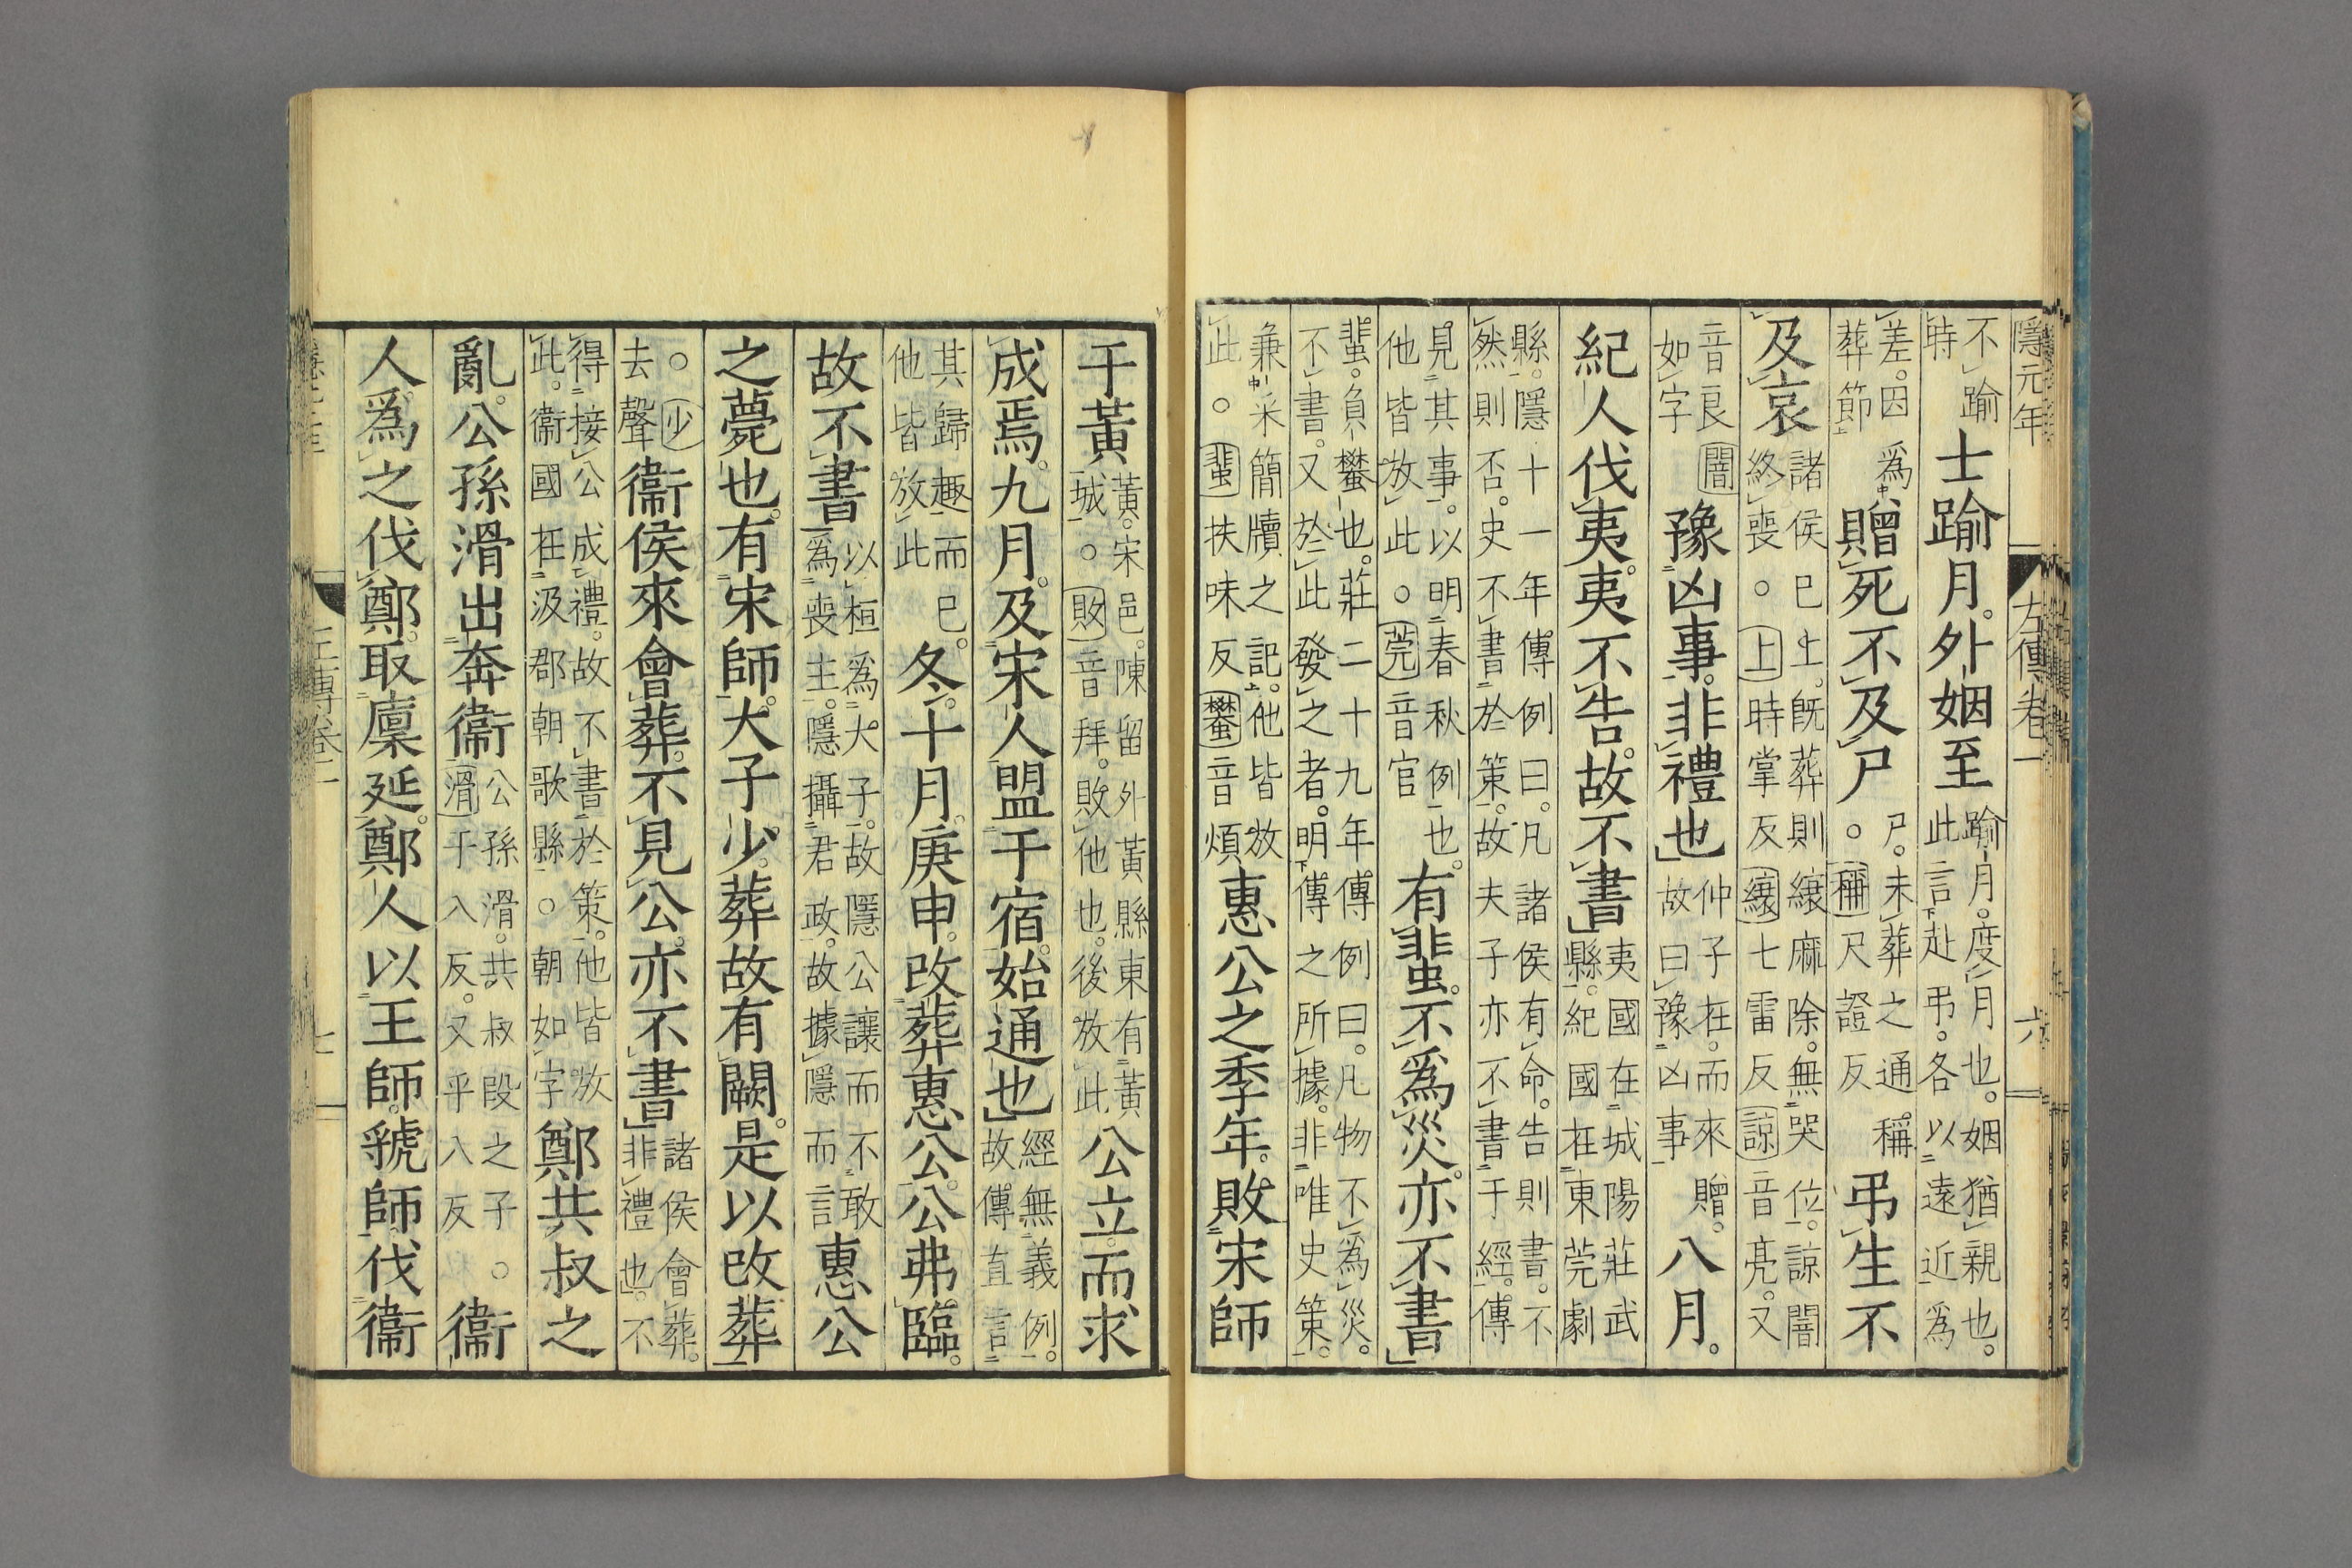 隱元年 左傳卷一 六
不踰時士踰月。外姻至踰月。度月也。姻猶親也。此言赴弔。各以遠近爲
差。因爲葬節贈死不及尸尸。未葬之通稱。○稱尺證反弔生不
及哀諸侯已上。既葬則縗麻除。無哭位。諒闇終喪。○上時掌反縗七雷反諒音亮。又
音良闇如字豫凶事。非禮也仲子在。而來贈。故曰豫凶事八月。
紀人伐夷。夷不告。故不書夷國在城陽莊武縣。紀國在東莞劇
縣。隱十一年傳例曰。凡諸侯有命。告則書。不然則否。史不書於策。故夫子亦不書于經。傳
見其事。以明春秋例也。他皆放此。○莞音官有蜚。不爲災。亦不書
蜚。負蠜也。莊二十九年傳例曰。凡物不為災。不書。又於此發之者。明傳之所據。非唯史策。
兼采簡牘之記。他皆放此。○蜚扶味反蠜音煩惠公之季年。敗宋師
于黃黃。宋邑。陳留外黃縣東有黃城。○敗音拜。敗他也。後放此公立。而求
成焉。九月。及宋人盟于宿。始通也經無義例。故傳直言
其歸趣而已。他皆放此冬。十月。庚申。改葬惠公。公弗臨。
故不書以桓爲大子。故隱公讓而不敢爲喪主。隱攝君政。故據隱而言惠公
之薨也。有宋師。大子少。葬故有闕。是以改葬
○少去聲衞侯來會葬。不見公。亦不書諸侯會葬。非禮也。不
得接公成禮。故不書於策。他皆放此。衞國在汲郡朝歌縣。○朝如字鄭共叔之
亂。公孫滑出奔衞公孫滑。共叔段之子。○滑于八反。又乎八反衞
人爲之伐鄭。取廩延。鄭人以王師。虢師。伐衞